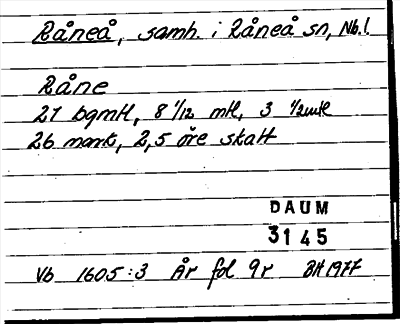 Råneå, samh. i Råneå sn, Nb.l.
Råne
27 bgmtl, 8 1/12 mtl, 3 1/2mtl
26 mark, 2,5 öre skatt
DAUM
3145
Vb 1605:3 År fol 9r BH 1977